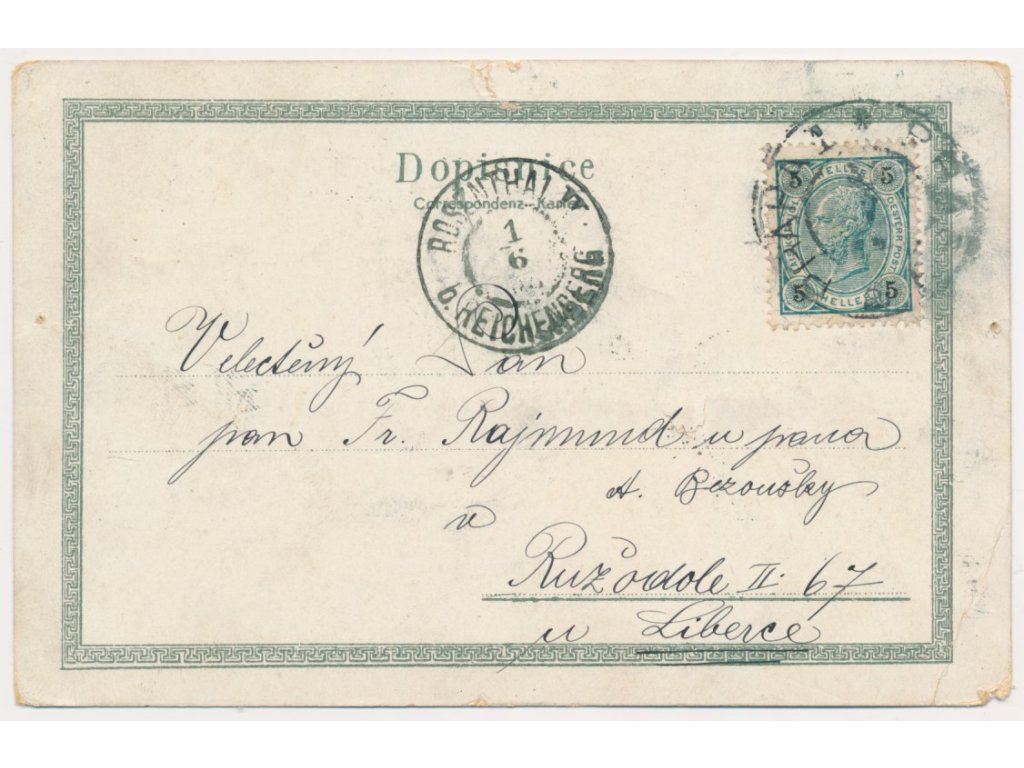 Dopisnice
Correspondenz-Karte
ROSENTHAL IX
1
6
b. REICHENBERG
PRAG
5 HELLER 5
OESTERR. POST.
5 HELLER 5
Velectěný Pan
pan Fr. Rajmund u pana
A. Bezoušky
v
Ružodole II. 67
u Liberce